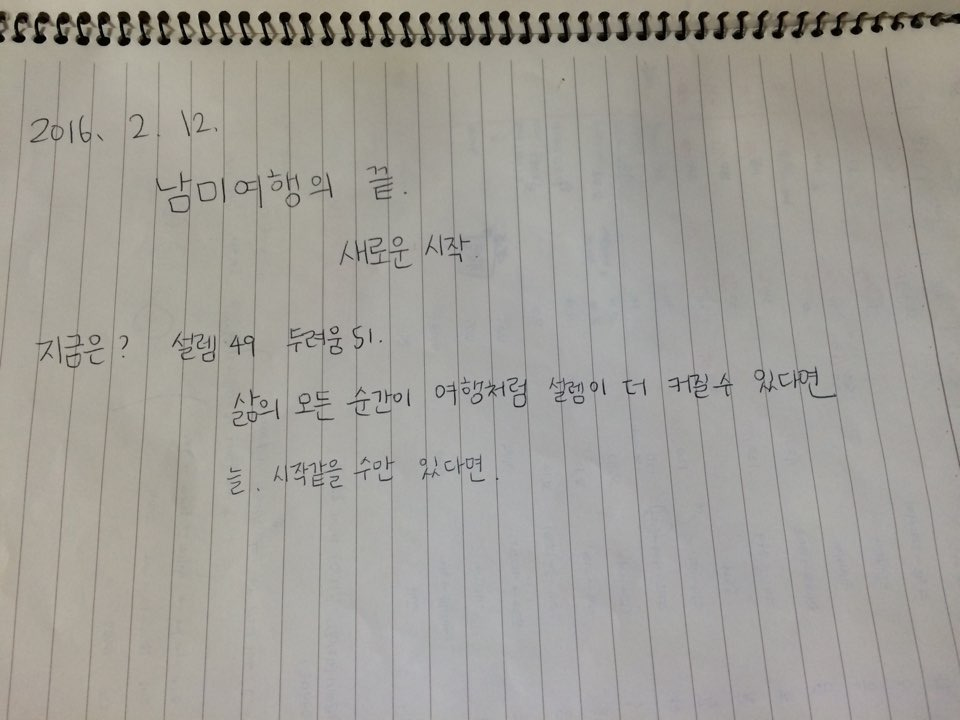 2016. 2. 12.
남미여행의 끝.
새로운 시작.
지금은? 설렘 49 두려움 51.
삶의 모든 순간이 여행처럼 설렘이 더 커질 수 있다면
늘. 시작같을 수만 있다면.